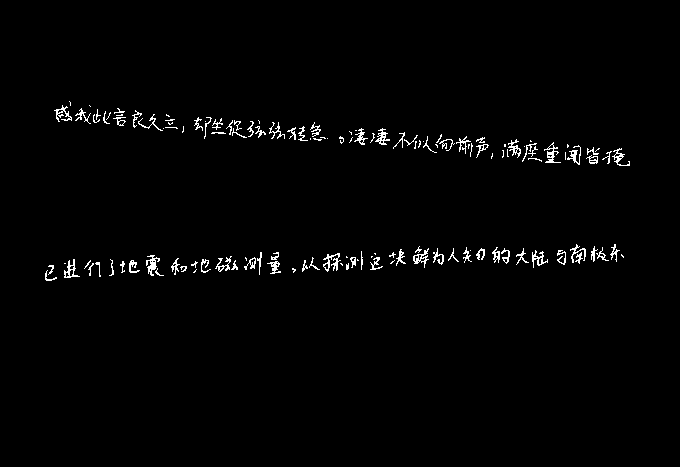 感我此言良久立,却坐促弦弦转急。凄凄不似向前声,满座重闻皆掩
已进行了地震和地磁测量,从探测这块鲜为人知的大陆与南极东